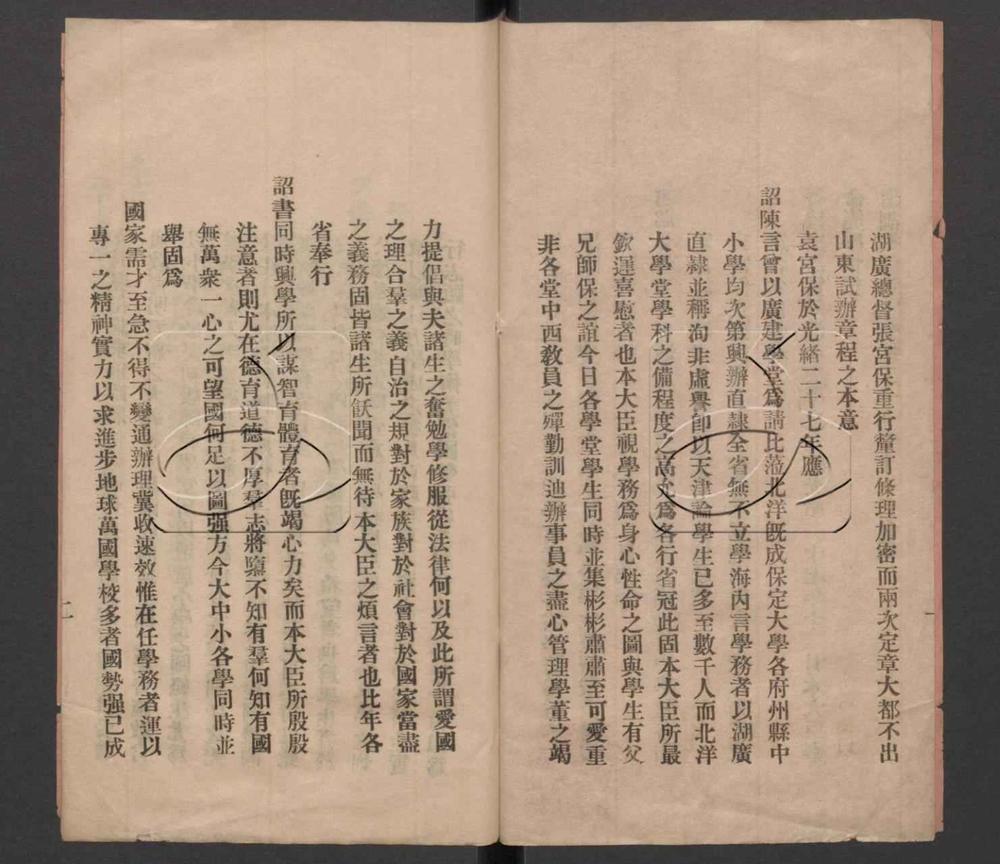 湖廣總督張宮保重行釐訂條理加密而兩次定章大都不出
山東試辦章程之本意
袁宮保於光緒二十七年應
詔陳言曾以廣建學堂爲請比蒞北洋旣成保定大學各府州縣中
小學均次第興辦直隸全省無不立學海內言學務者以湖廣
直隸並稱洵非虛譽卽以天津論學生已多至數千人而北洋
大學堂學科之備程度之高尤爲各行省冠此固本大臣所最
欽遲喜慰者也本大臣視學務爲身心性命之圖與學生有父
兄師保之誼今日各學堂學生同時並集彬彬肅肅至可愛重
非各堂中西敎員之殫勤訓迪辦事員之盡心管理學董之竭
一
力提倡與夫諸生之奮勉學修服從法律何以及此所謂愛國
之理合羣之義自治之規對於家族對於社會對於國家當盡
之義務固皆諸生所飫聞而無待本大臣之煩言者也比年各
省奉行
詔書同時興學所以謀智育體育者旣竭心力矣而本大臣所殷殷
注意者則尤在德育道德不厚羣志將隳不知有羣何知有國
無萬衆一心之可望國何足以圖强方今大中小各學同時並
舉固爲
國家需才至急不得不變通辦理冀收速效惟在任學務者運以
專一之精神實力以求進步地球萬國學校多者國勢强已成
二